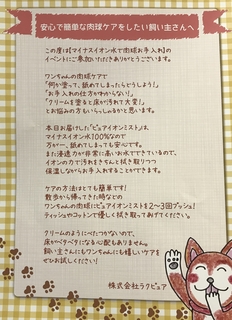 安心で簡単な肉球ケアをしたい飼い主さんへ
この度は【マイナスイオン水で肉球お手入れ】の
イベントにご参加いただきありがとうございます。
ワンちゃんの肉球ケアで
「何か塗って、舐めてしまったらどうしよう!」
「お手入れの仕方がわからない!」
「クリームを塗ると床が汚れて大変!」
とお悩みの方もいらっしゃるかと思います。
本日お届けした『ピュアイオンミスト』は、
マイナスイオン水100%なので
万が一、舐めてしまっても安心です。
また浸透力が非常に高いお水でできているので、
イオンの力で汚れをきちんと拭き取りつつ
保湿しながらお手入れすることができます。
ケアの方法はとても簡単です!
散歩から帰ってきた時などの
ワンちゃんの肉球にピュアイオンミストを2~3回プッシュ!
ティッシュやコットンで優しく拭き取ってあげてください。
クリームのようにべたつかないので、
床がベタベタになる心配もありません。
飼い主さんにもワンちゃんにも嬉しいケアを
ぜひお試しください!
株式会社ラクピュア